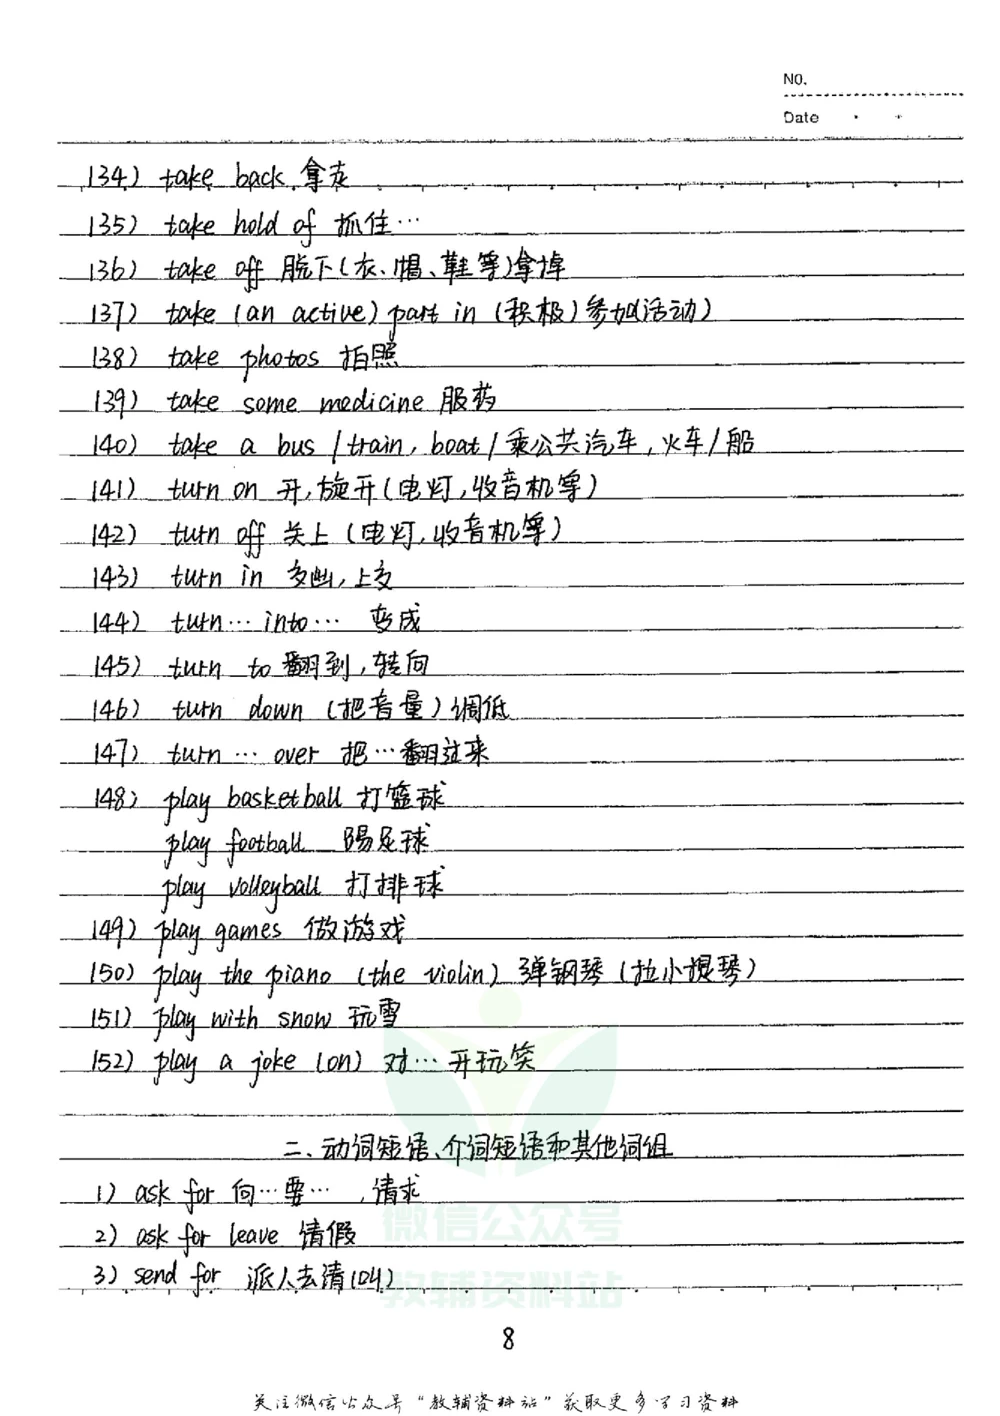 NO.
Date
134) take back 拿走
135) take hold of 抓住…
136) take off 脱下(衣、帽、鞋等)拿掉
137) take (an active) part in (积极)参加(活动)
138) take photos 拍照
139) take some medicine 服药
140) take a bus / train, boat / 乘公共汽车,火车/船
141) turn on 开,旋开(电灯,收音机等)
142) turn off 关上(电灯,收音机等)
143) turn in 交出,上交
144) turn… into… 变成
145) turn to 翻到,转向
146) turn down (把音量)调低
147) turn … over 把…翻过来
148) play basketball 打篮球
play football 踢足球
play volleyball 打排球
149) play games 做游戏
150) play the piano (the violin) 弹钢琴(拉小提琴)
151) play with snow 玩雪
152) play a joke (on) 对…开玩笑
二、动词短语、介词短语和其他词组
1) ask for 向…要…,请求
2) ask for leave 请假
3) send for 派人去请(叫)
微信公众号
教辅资料站
8
关注微信公众号“教辅资料站”获取更多学习资料